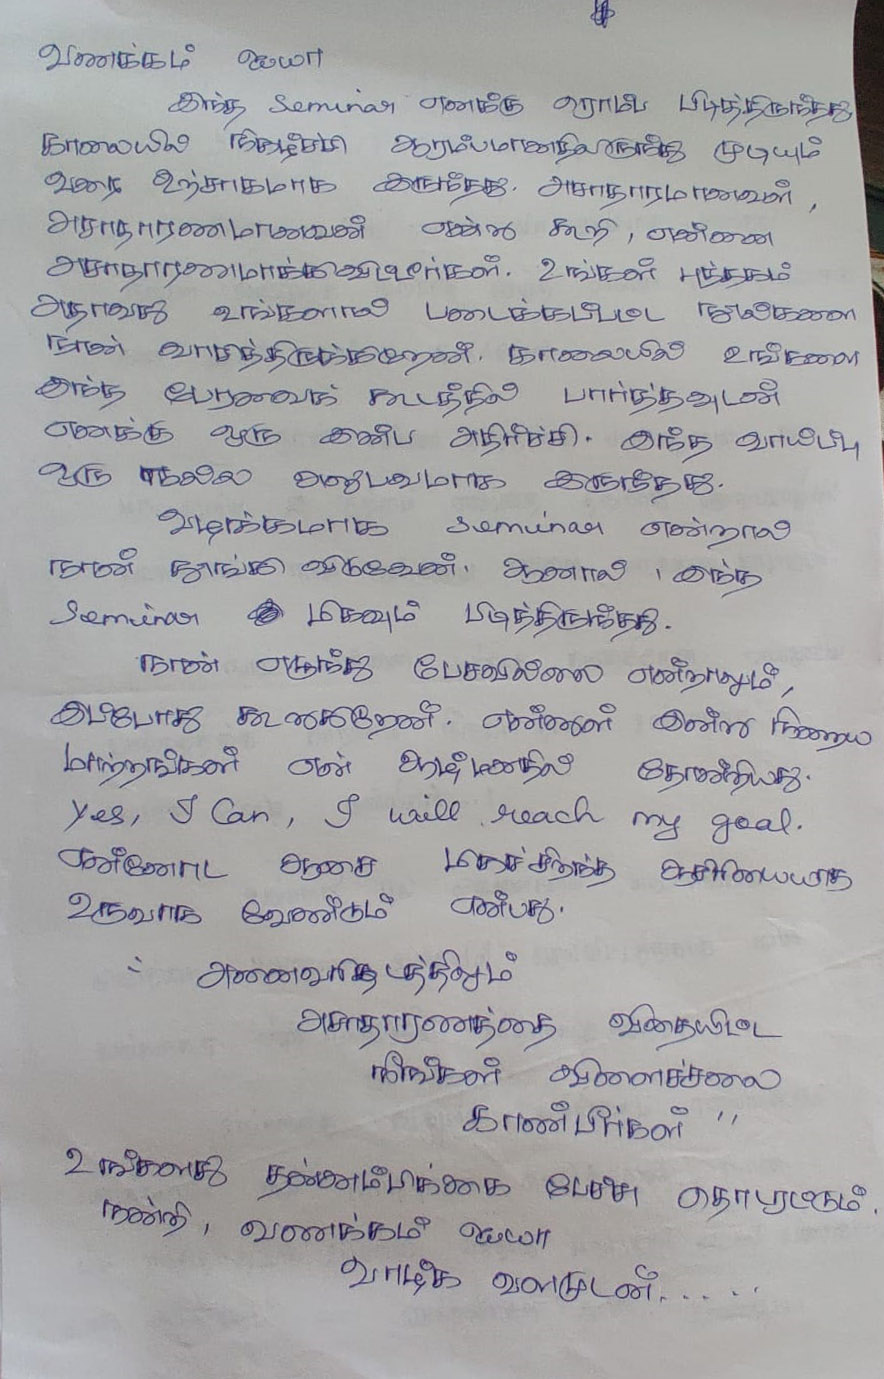 வணக்கம் ஐயா
இந்த Seminar எனக்கு ரொம்ப பிடித்திருந்தது
காலையில் நிகழ்ச்சி ஆரம்பமானதிலிருந்து முடியும்
வரை உற்சாகமாக இருந்தது. அசாதாரமானவள்,
அசாதாரணமானவன் என்று கூறி, என்னை
அசாதாரணமாக்கிவிட்டீர்கள். உங்கள் புத்தகம்
அதாவது உங்களால் படைக்கப்பட்ட நூல்களை
நான் வாசித்திருக்கிறேன். காலையில் உங்களை
இந்த பேரவைக் கூடத்தில் பார்த்தவுடன்
எனக்கு ஒரு இன்ப அதிர்ச்சி. இந்த வாய்ப்பு
ஒரு நல்ல அனுபவமாக இருந்தது.
வழக்கமாக Seminar என்றால்
நான் தூங்கி விடுவேன். ஆனால், இந்த
Seminar மிகவும் பிடித்திருந்தது.
நான் எழுந்து பேசவில்லை என்றாலும்,
இப்போது கூறுகிறேன். என்னுள் இன்று நிறைய
மாற்றங்கள் என் ஆழ்மனதில் தோன்றியது.
Yes, I Can, I will reach my goal.
என்னோட ஆசை மிகச்சிறந்த ஆசிரியையாக
உருவாக வேண்டும் என்பது.
அனைவரிடத்திலும்
அசாதாரணத்தை விதையிட்ட
நீங்கள் விளைச்சலை
காண்பீர்கள் "
உங்களது தன்னம்பிக்கை பேச்சு தொடரட்டும்.
நன்றி, வணக்கம் ஐயா
வாழ்க வளமுடன்.....